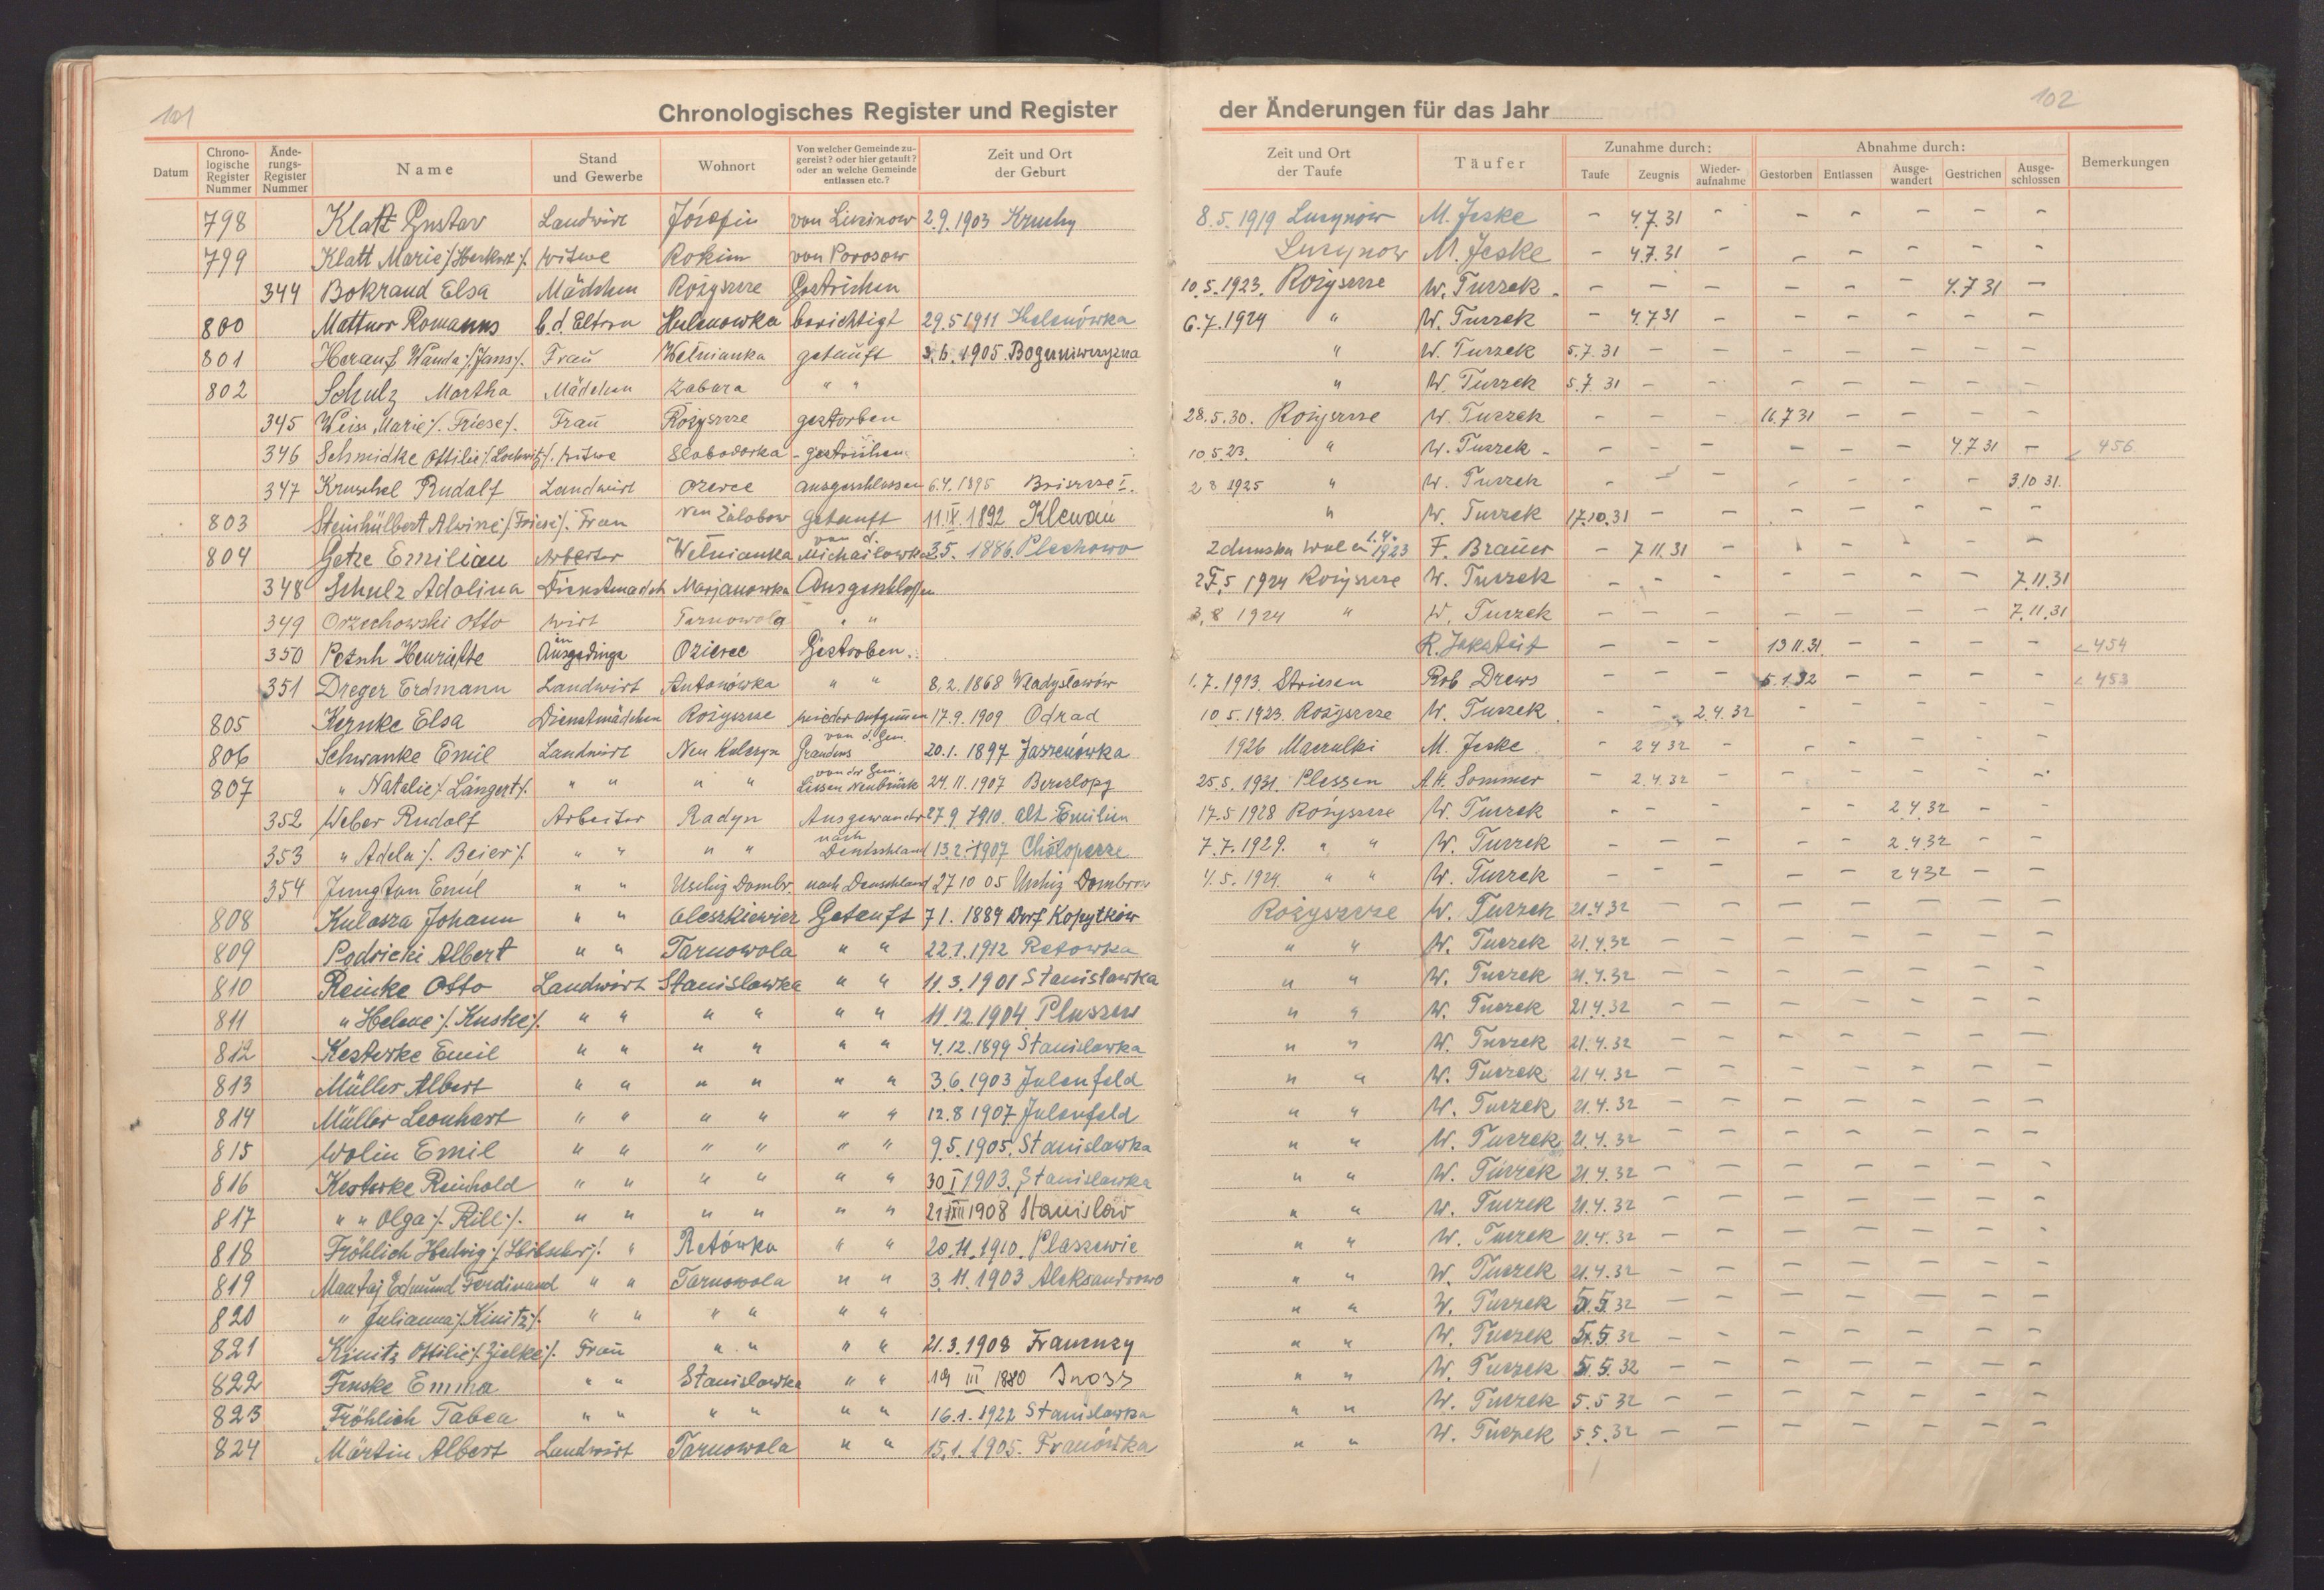 101
102
Chronologisches Register und Register der Änderungen für das Jahr
Datum | Chronologische Register Nummer | Änderungs-Register Nummer | Name | Stand und Gewerbe | Wohnort | Von welcher Gemeinde zugereist? oder hier getauft? oder an welche Gemeinde entlassen etc.? | Zeit und Ort der Geburt | Zeit und Ort der Taufe | Täufer | Zunahme durch: Taufe | Zeugnis | Wiederaufnahme | Abnahme durch: Gestorben | Entlassen | Ausgewandert | Gestrichen | Ausgeschlossen | Bemerkungen
798 Klatt Gustav Landwirt Józefin von Lucinow 2.9.1903 Kruchy 8.5.1919 Lucynów M. Jeske – 4.7.31 – – – – – –
799 Klatt Marie /: Herkert :/ Witwe Rokini von Porosow Lucynow M. Jeske – 4.7.31 – – – – – –
344 Bokrand Elsa Mädchen Rożyszcze Gestrichen 10.5.1923. Rożyszcze W. Tuczek – – – – – – 4.7 31 –
800 Mattner Romanus b. d. Eltern Helenowka berichtigt 29.5 1911 Helenówka 6.7.1924 " W. Tuczek – 4.7 31 – – – – – –
801 Herauf Wanda /: Jans :/ Frau Wełnianka getauft 3.6.1905 Boguniwczyzna " W. Tuczek 5.7.31 – – – – – – –
802 Schulz Martha Mädchen Zabara " " " W. Tuczek 5.7 31 – – – – – – –
345 Weiss Marie /: Friese :/ Frau Rożyszcze gestorben 28.5.30. Rożyszcze W. Tuczek – – – 11.7 31 – – – –
346 Schmidke Ottilie /: Lochwitz :/ Witwe Slobodorka gestrichen 10.5.23. " W. Tuczek – – – – – – 4.7 31 – 456
347 Kruschel Rudolf Landwirt Ozerce ausgeschlossen 6.4.1895 Briszcze I. 2 8 1925 " W. Tuczek – – – – – – – 3.10 31.
803 Steinhülbert Alwine /: Friese :/ Frau Neu Zalobow getauft 11.IX.1892 Klewań " W. Tuczek 17.10.31 – – – – – – –
804 Getze Emilian Arbeiter Wełnianka von d. Michailowka 3.5. 1886. Plechowo Zdunska Wola 1.4. 1923 F. Brauer – 7 11.31 – – – – – –
348 Schulz Adolina Dienstmädch Marjanowka Ausgeschlossen 27.5 1924 Rożyszcze W. Tuczek – – – – – – – 7.11.31
349 Orzechowski Otto Wirt Tarnowola " " 3.8 1924 " W. Tuczek – – – – – – – 7.11.31
350 Petsch Henriette in Ausgedinge Ozierce Gestorben. R. Jaksteit – – – 13 11.31. – – – – 454
351 Dreger Erdmann Landwirt Antonówka " " 8.2.1868 Władysławów 1.7.1913. Striesen Rob Drews – – – 5.1.32 – – – – 453
805 Kernke Elsa Dienstmädchen Rożyszcze wieder aufgenen 17.9.1909 Odrad 10.5.1923. Rożyszcze W. Tuczek – – 2.4.32 – – – – –
806 Schwanke Emil Landwirt Neu Kulczyn von d. Gem. Graudens 20.1.1897 Jaszenówka 1926 Maczulki M. Jeske – 2 4 32 – – – – – –
807 " Natalie /: Längert :/ " " " " von der Gem. Lissen Neubrück 24.11.1907 Berezlopy 25.5.1931. Plessen A.H. Sommer – 2.4.32 – – – – – –
352 Weber Rudolf Arbeiter Radyn Ausgewandert 27.9.1910. Alt Emilin 17.5 1928 Rożyszcze W. Tuczek – – – – – 2.4.32 – –
353 " Adela /: Beier :/ " " " " nach Deutschland 13.2.1907 Choloperze 7.7.1929. " " W. Tuczek – – – – – 2.4.32 – –
354 Jungtan Emil " " Uschig Dombr. nach Deuschland 27 10 05 Uschig Dombrow 4.5.1924. " " W. Tuczek – – – – – 2 4 32 – –
808 Kulasza Johann " " Oleszkiewicz Getauft 7 1. 1889 Dorf Kopytkow Rożyszcze W. Tuczek 21.4 32 – – – – – – –
809 Podricki Albert " " Tarnowola " " 22.1.1912 Retowka " " W. Tuczek 21.4.32 – – – – – – –
810 Reinke Otto Landwirt Stanislowka " " 11.3.1901 Stanislawka " " W. Tuczek 21.4.32 – – – – – – –
811 " Helene /: Kuske :/ " " " " " " 11.12.1904 Pluszew " " W. Tuczek 21.4.32 – – – – – – –
812 Kesterke Emil " " " " " " 4.12.1899 Stanislawka " " W. Tuczek 21.4.32 – – – – – – –
813 Müller Albert " " " " " " 3.6.1903 Julenfeld " " W. Tuczek 21.4.32 – – – – – – –
814 Müller Leonhart " " " " " " 12.8 1907 Julenfeld " " W. Tuczek 21.4.32 – – – – – – –
815 Wolin Emil " " " " " " 9.5.1905. Stanislawka " " W. Tuczek 21.4.32 – – – – – – –
816 Kesterke Reinhold " " " " " " 30 I 1903. Stanislawka " " W. Tuczek 21.4.32 – – – – – – –
817 " " Olga /: Rill :/ " " " " " " 1908 Stanislaw " " W. Tuczek 21.4.32 – – – – – – –
818 Fröhlich Hedwig /: Hibscher :/ " Retówka " " 20.11.1910. Plaszewie " " W. Tuczek 21.4.32 – – – – – – –
819 Mantaj Edmund Ferdinand " " Tarnowola " " 3.11.1903 Aleksandrowo " " W. Tuczek 21.4.32 – – – – – – –
820 " Julianna /: Kinitz :/ " " " " " " " " W. Tuczek 5.5.32 – – – – – – –
821 Kinitz Ottilie /: Zielke :/ Frau " " " " 21.3.1908 Franenzy " " W. Tuczek 5.5.32 – – – – – – –
822 Fenske Emma " " Stanislowka " " 19 III 1880 " " W. Tuczek 5.5.32 – – – – – – –
823 Fröhlich Tabea " " " " " " 16.1.1922 Stanislawka " " W. Tuczek 5.5 32 – – – – – – –
824 Martin Albert Landwirt Tarnowola " " 15.1.1905. Franówka " " W. Tuczek 5.5.32 – – – – – – –